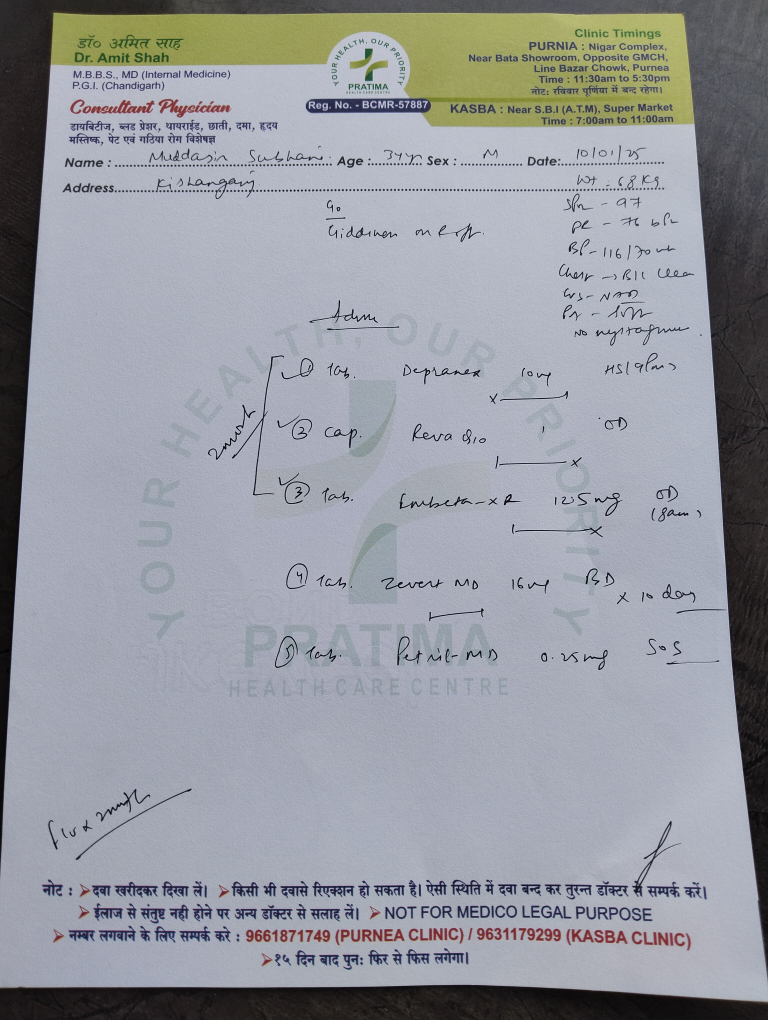 डा० अमित साह
Dr. Amit Shah
M.B.B.S., MD (Internal Medicine)
P.G.I. (Chandigarh)
Consultant Physician
डायबिटीज, ब्लड प्रेशर, थायराईड, छाती, दमा, हृदय
मस्तिष्क, पेट एवं गठिया रोग विशेषज्ञ
YOUR HEALTH, OUR PRIORITY
PRATIMA
HEALTH CARE CENTRE
Reg. No. - BCMR-57887
Clinic Timings
PURNIA : Nigar Complex,
Near Bata Showroom, Opposite GMCH,
Line Bazar Chowk, Purnea
Time : 11:30am to 5:30pm
नोट: रविवार पूर्णिया में बन्द रहेगा।
KASBA : Near S.B.I (A.T.M), Super Market
Time : 7:00am to 11:00am
Name : Muddasir Subhani Age : 34yr Sex : M Date: 10/01/25
Address Kishanganj
Wt - 68 Kg
- 97
PR - 76
BP - 116/70
Chest → B/L Clear
- NAD
P/A - Soft
No nystagmus
C/o
Giddiness on &
Adv
① Tab. Depranex 10mg HS (9pm)
② Cap. Reva Q10 1 OD
③ Tab. Embeta-XR 12.5mg OD
(8am)
2month
④ Tab. Zevert MD 16mg BD
x 10 day
⑤ Tab. Petril-MD 0.25mg SOS
YOUR HEALTH, OUR PRIORITY
PRATIMA
HEALTH CARE CENTRE
F/U x 2month
नोट : ➤दवा खरीदकर दिखा लें। ➤किसी भी दवासे रिएक्शन हो सकता है। ऐसी स्थिति में दवा बन्द कर तुरन्त डॉक्टर से सम्पर्क करें।
➤ईलाज से संतुष्ट नही होने पर अन्य डॉक्टर से सलाह लें। ➤NOT FOR MEDICO LEGAL PURPOSE
➤नम्बर लगवाने के लिए सम्पर्क करे : 9661871749 (PURNEA CLINIC) / 9631179299 (KASBA CLINIC)
➤१५ दिन बाद पुनः फिर से फिस लगेगा।